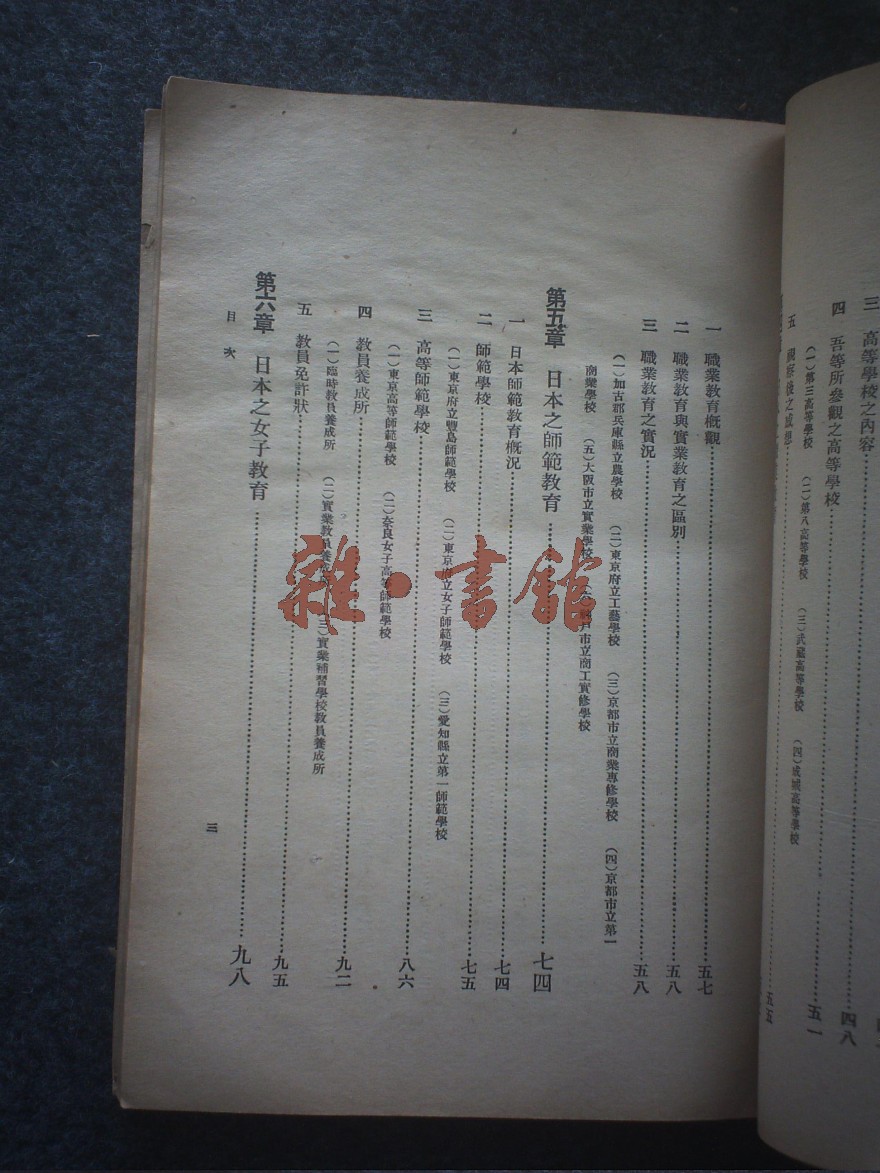 三　高等學校之內容
四　吾等所參觀之高等學校……四八
（一）第三高等學校　（二）第八高等學校　（三）武藏高等學校　（四）成城高等學校
五　觀察後之感想……五五
一　職業教育概觀……五七
二　職業教育與實業教育之區別……五八
三　職業教育之實況……五八
（一）加古郡兵庫縣立農學校　（二）東京府立工藝學校　（三）京都市立商業專修學校　（四）京都市立第一
商業學校　（五）大阪市立實業學校　（六）神戶市立商工實修學校
第五章　日本之師範教育……七四
一　日本師範教育概況……七四
二　師範學校……七五
（一）東京府立豐島師範學校　（二）東京府立女子師範學校　（三）愛知縣立第一師範學校
三　高等師範學校……八六
（一）東京高等師範學校　（二）奈良女子高等師範學校
四　教員養成所……九二
（一）臨時教員養成所　（二）實業教員養成所　（三）實業補習學校教員養成所
五　教員免許狀……九五
第六章　日本之女子教育……九八
目次
三
雜·書館